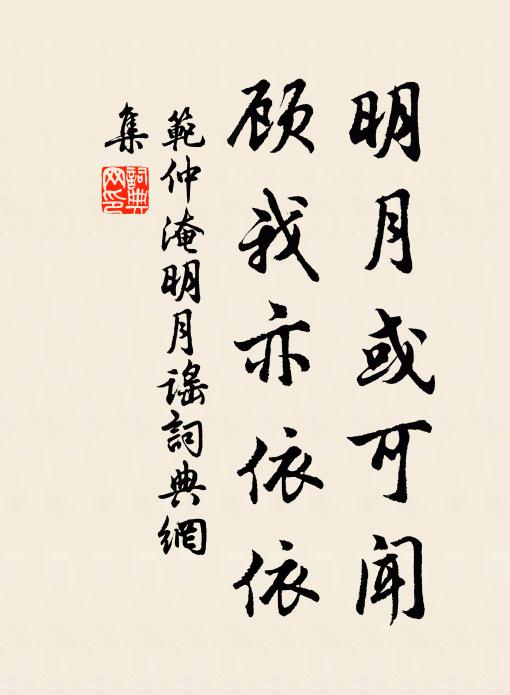 明月或可闻
顾我亦依依
範仲淹明月谣詞典網
集
詞典网印